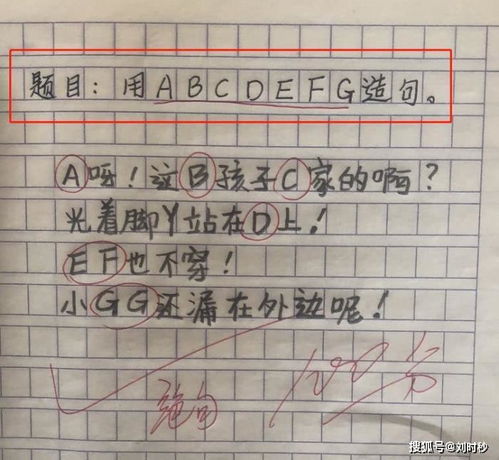 题目：用ABCDEFG造句。
A呀！这B孩子C家的啊？
光着脚丫站在D上！
EF也不穿！
小GG还漏在外边呢！
绝句 100分
搜狐号@刘时秒